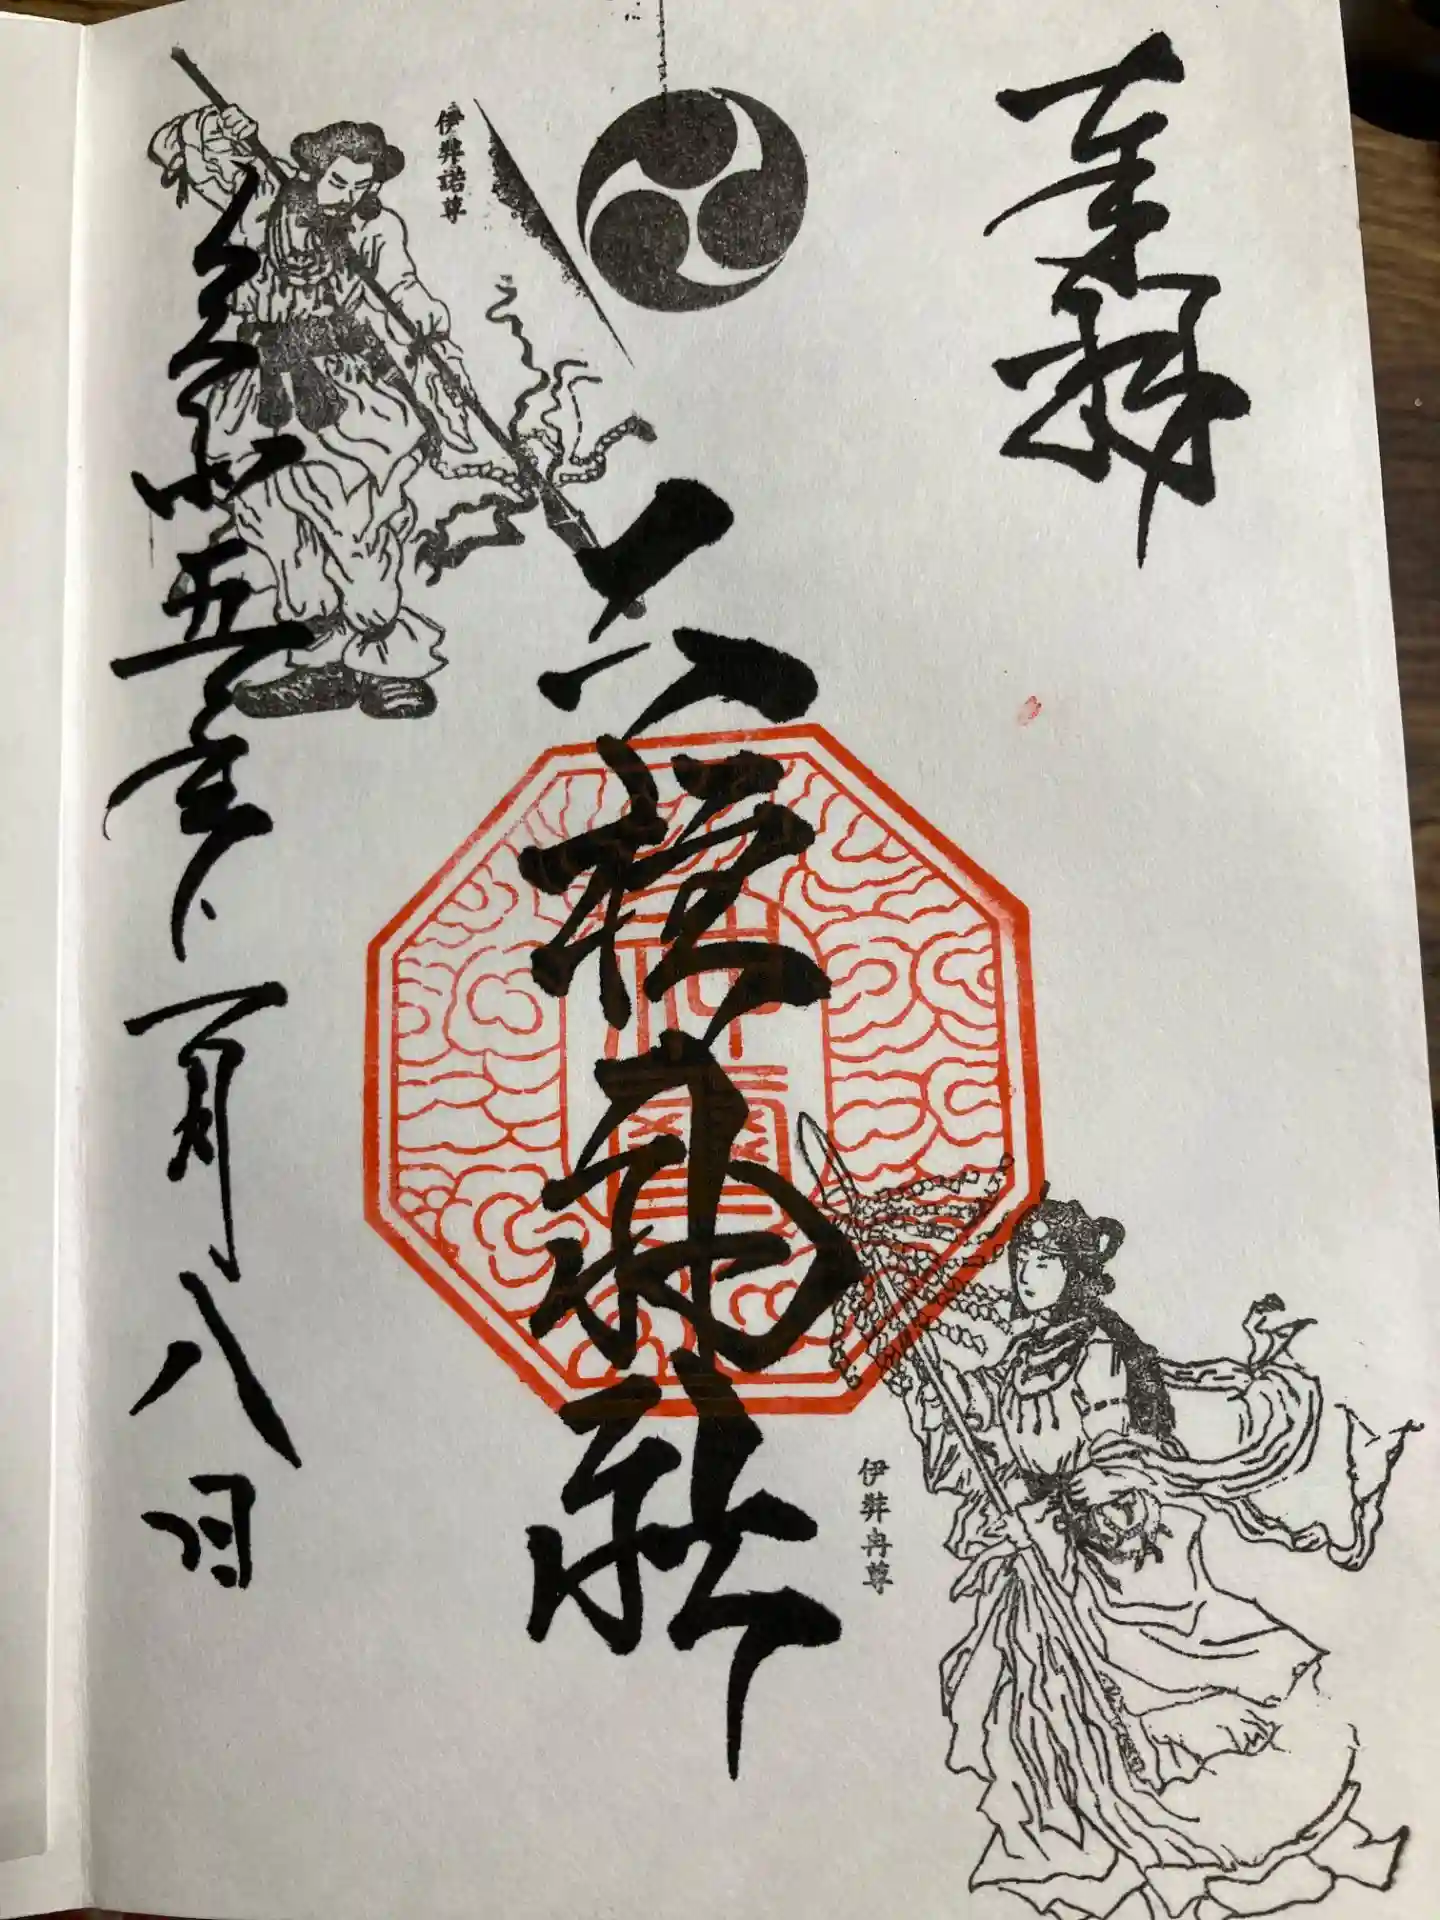 奉拝
神社
伊弉冉尊
伊弉諾尊
令和五年一月八日